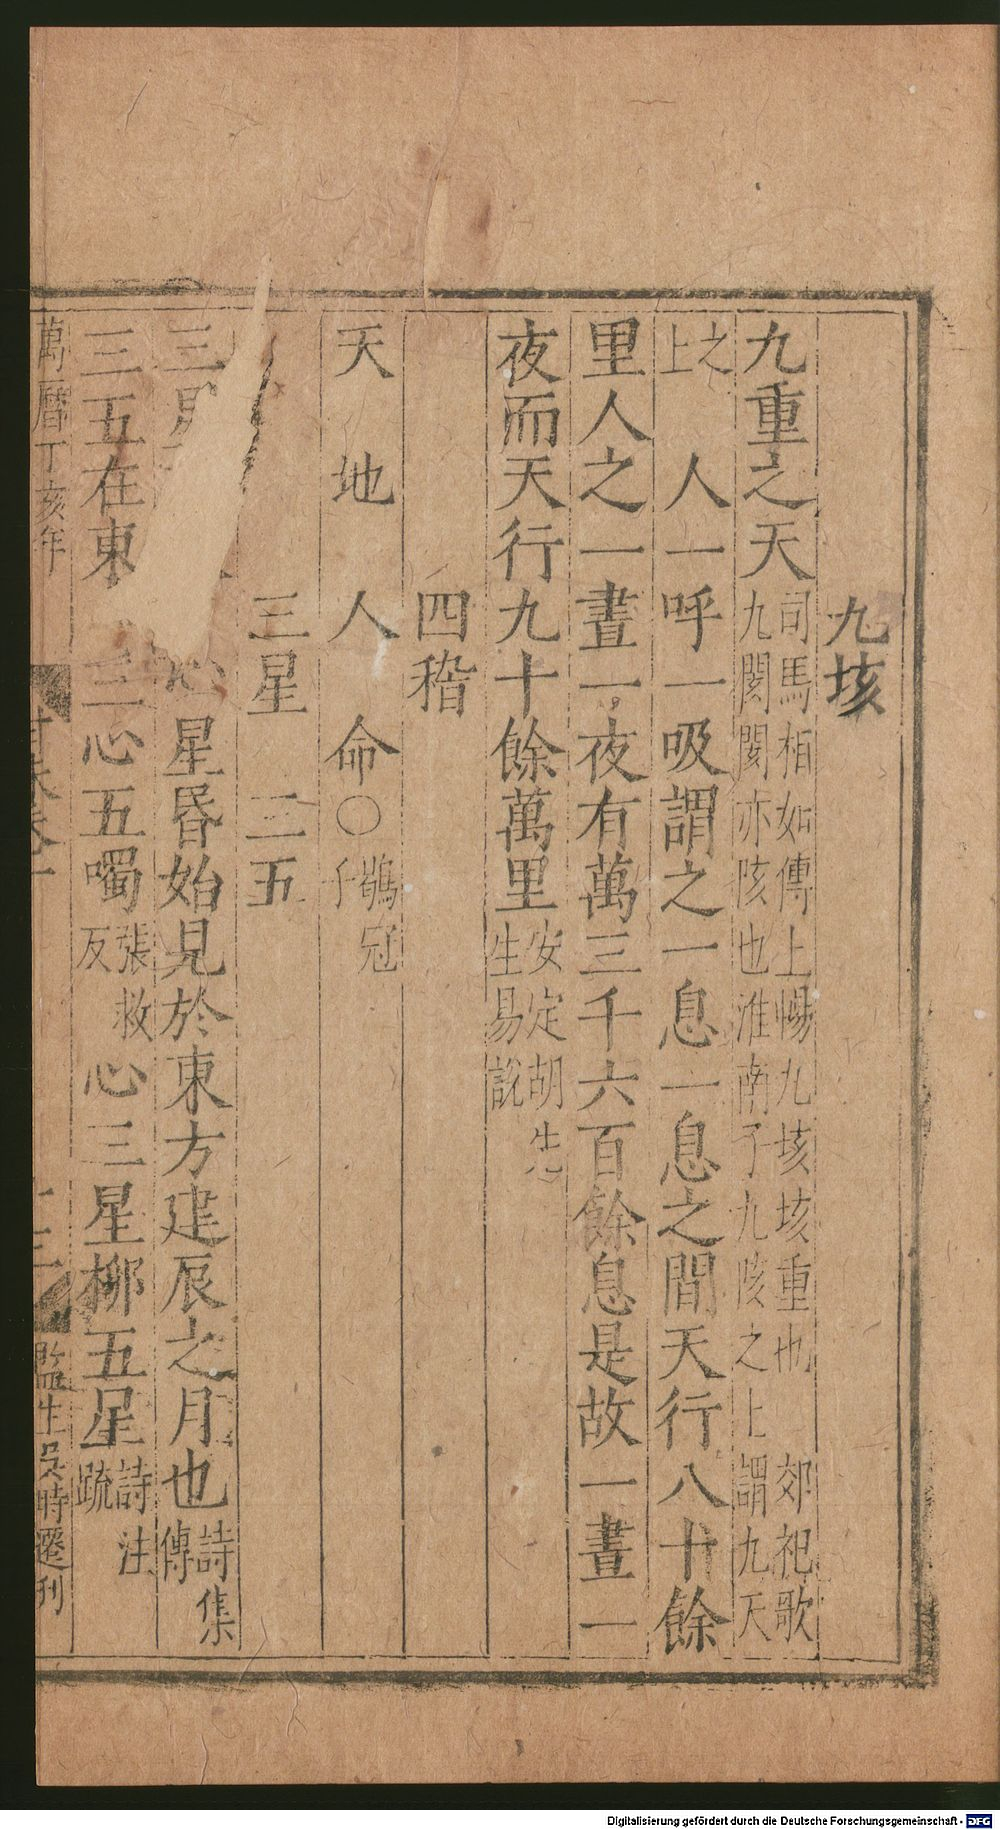 九垓
九重之天司馬相如傳上暢九垓垓重也　郊祀歌
九閡閡亦陔也淮南子九陔之上謂九天
之上　人一呼一吸謂之一息一息之間天行八十餘
里人之一晝一夜有萬三千六百餘息是故一晝一
夜而天行九十餘萬里安定胡先
生易說
四稽
天　地　人　命○鶡冠
子
三星　三五
三　心星昏始見於東方建辰之月也詩集
傳
三五在東　三心五噣張救
反心三星柳五星詩注
疏
萬曆丁亥年
監生吳時遷刊
Digitalisierung gefördert durch die Deutsche Forschungsgemeinschaft - DFG